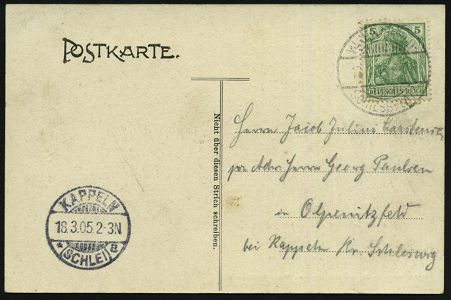 POSTKARTE.
5 5
DEUTSCHES REICH
Nicht über diesen Strich schreiben.
Herrn Jacob Julius
per Adr. Herrn Georg Paulsen
in Olpenitzfeld
bei Kappeln Kr. Schleswig
KAPPELN
18.3.05.2-3N
* (SCHLEI) a